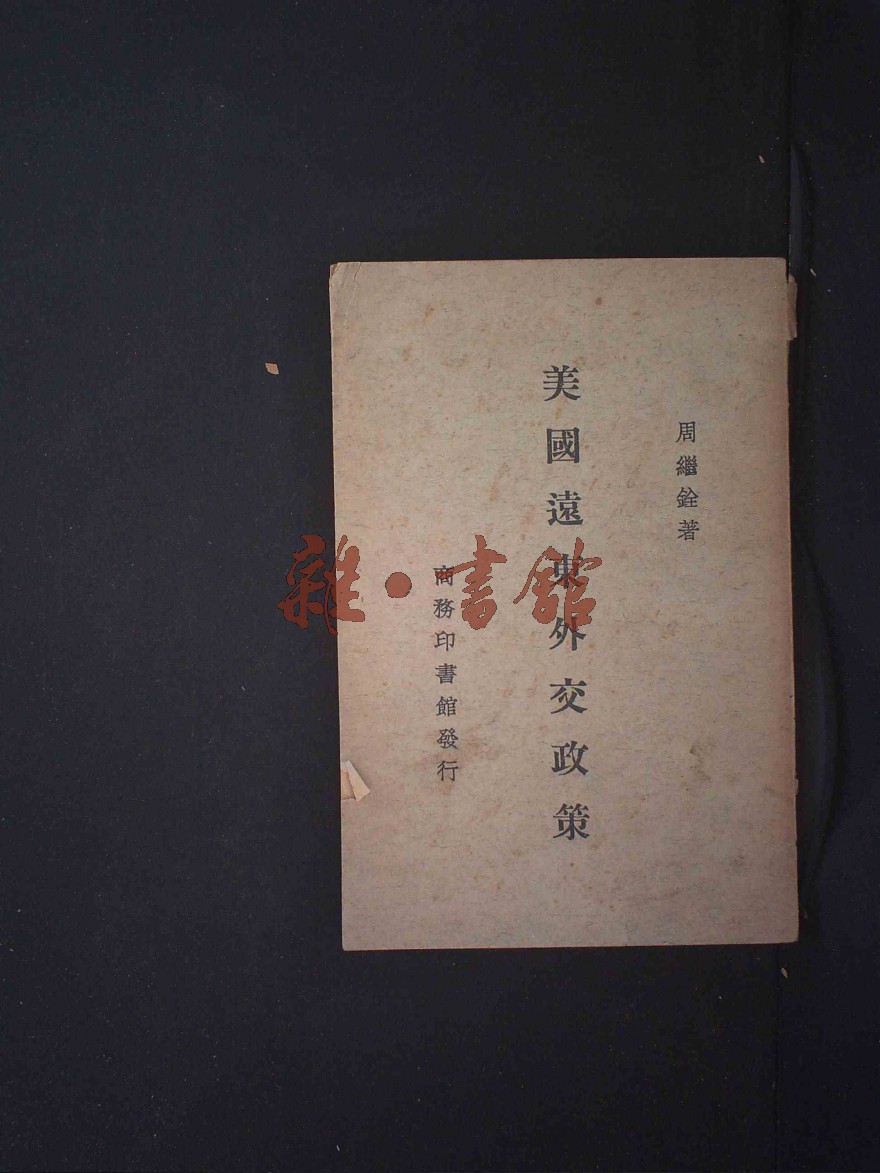 周繼銓著
美國遠東外交政策
商務印書館發行
雜·書館